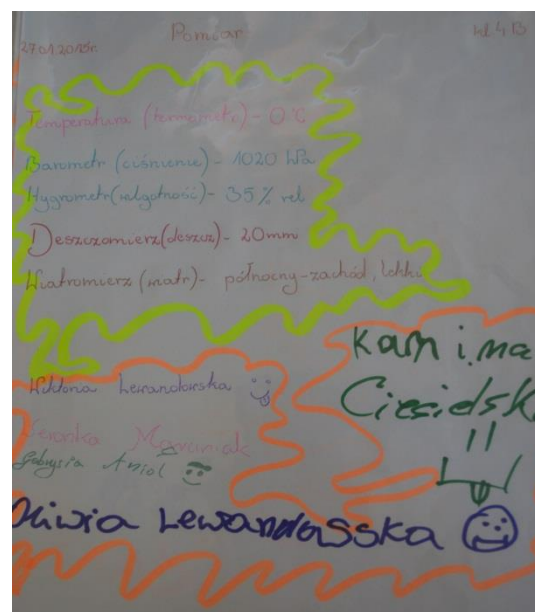 Pomiar
kl 4 B
27.01.2015r.
Temperatura (termometr) - 0°C
Barometr (ciśnienie) - 1020 hPa
Hygrometr (wilgotność) - 35 % rel
Deszczomierz (deszcz) - 20mm
Wiatromierz (wiatr) - północny-zachód, lekki
Wiktoria Lewandowska
Weronika Marciniak
Gabrysia Anioł
Oliwia Lewandosska